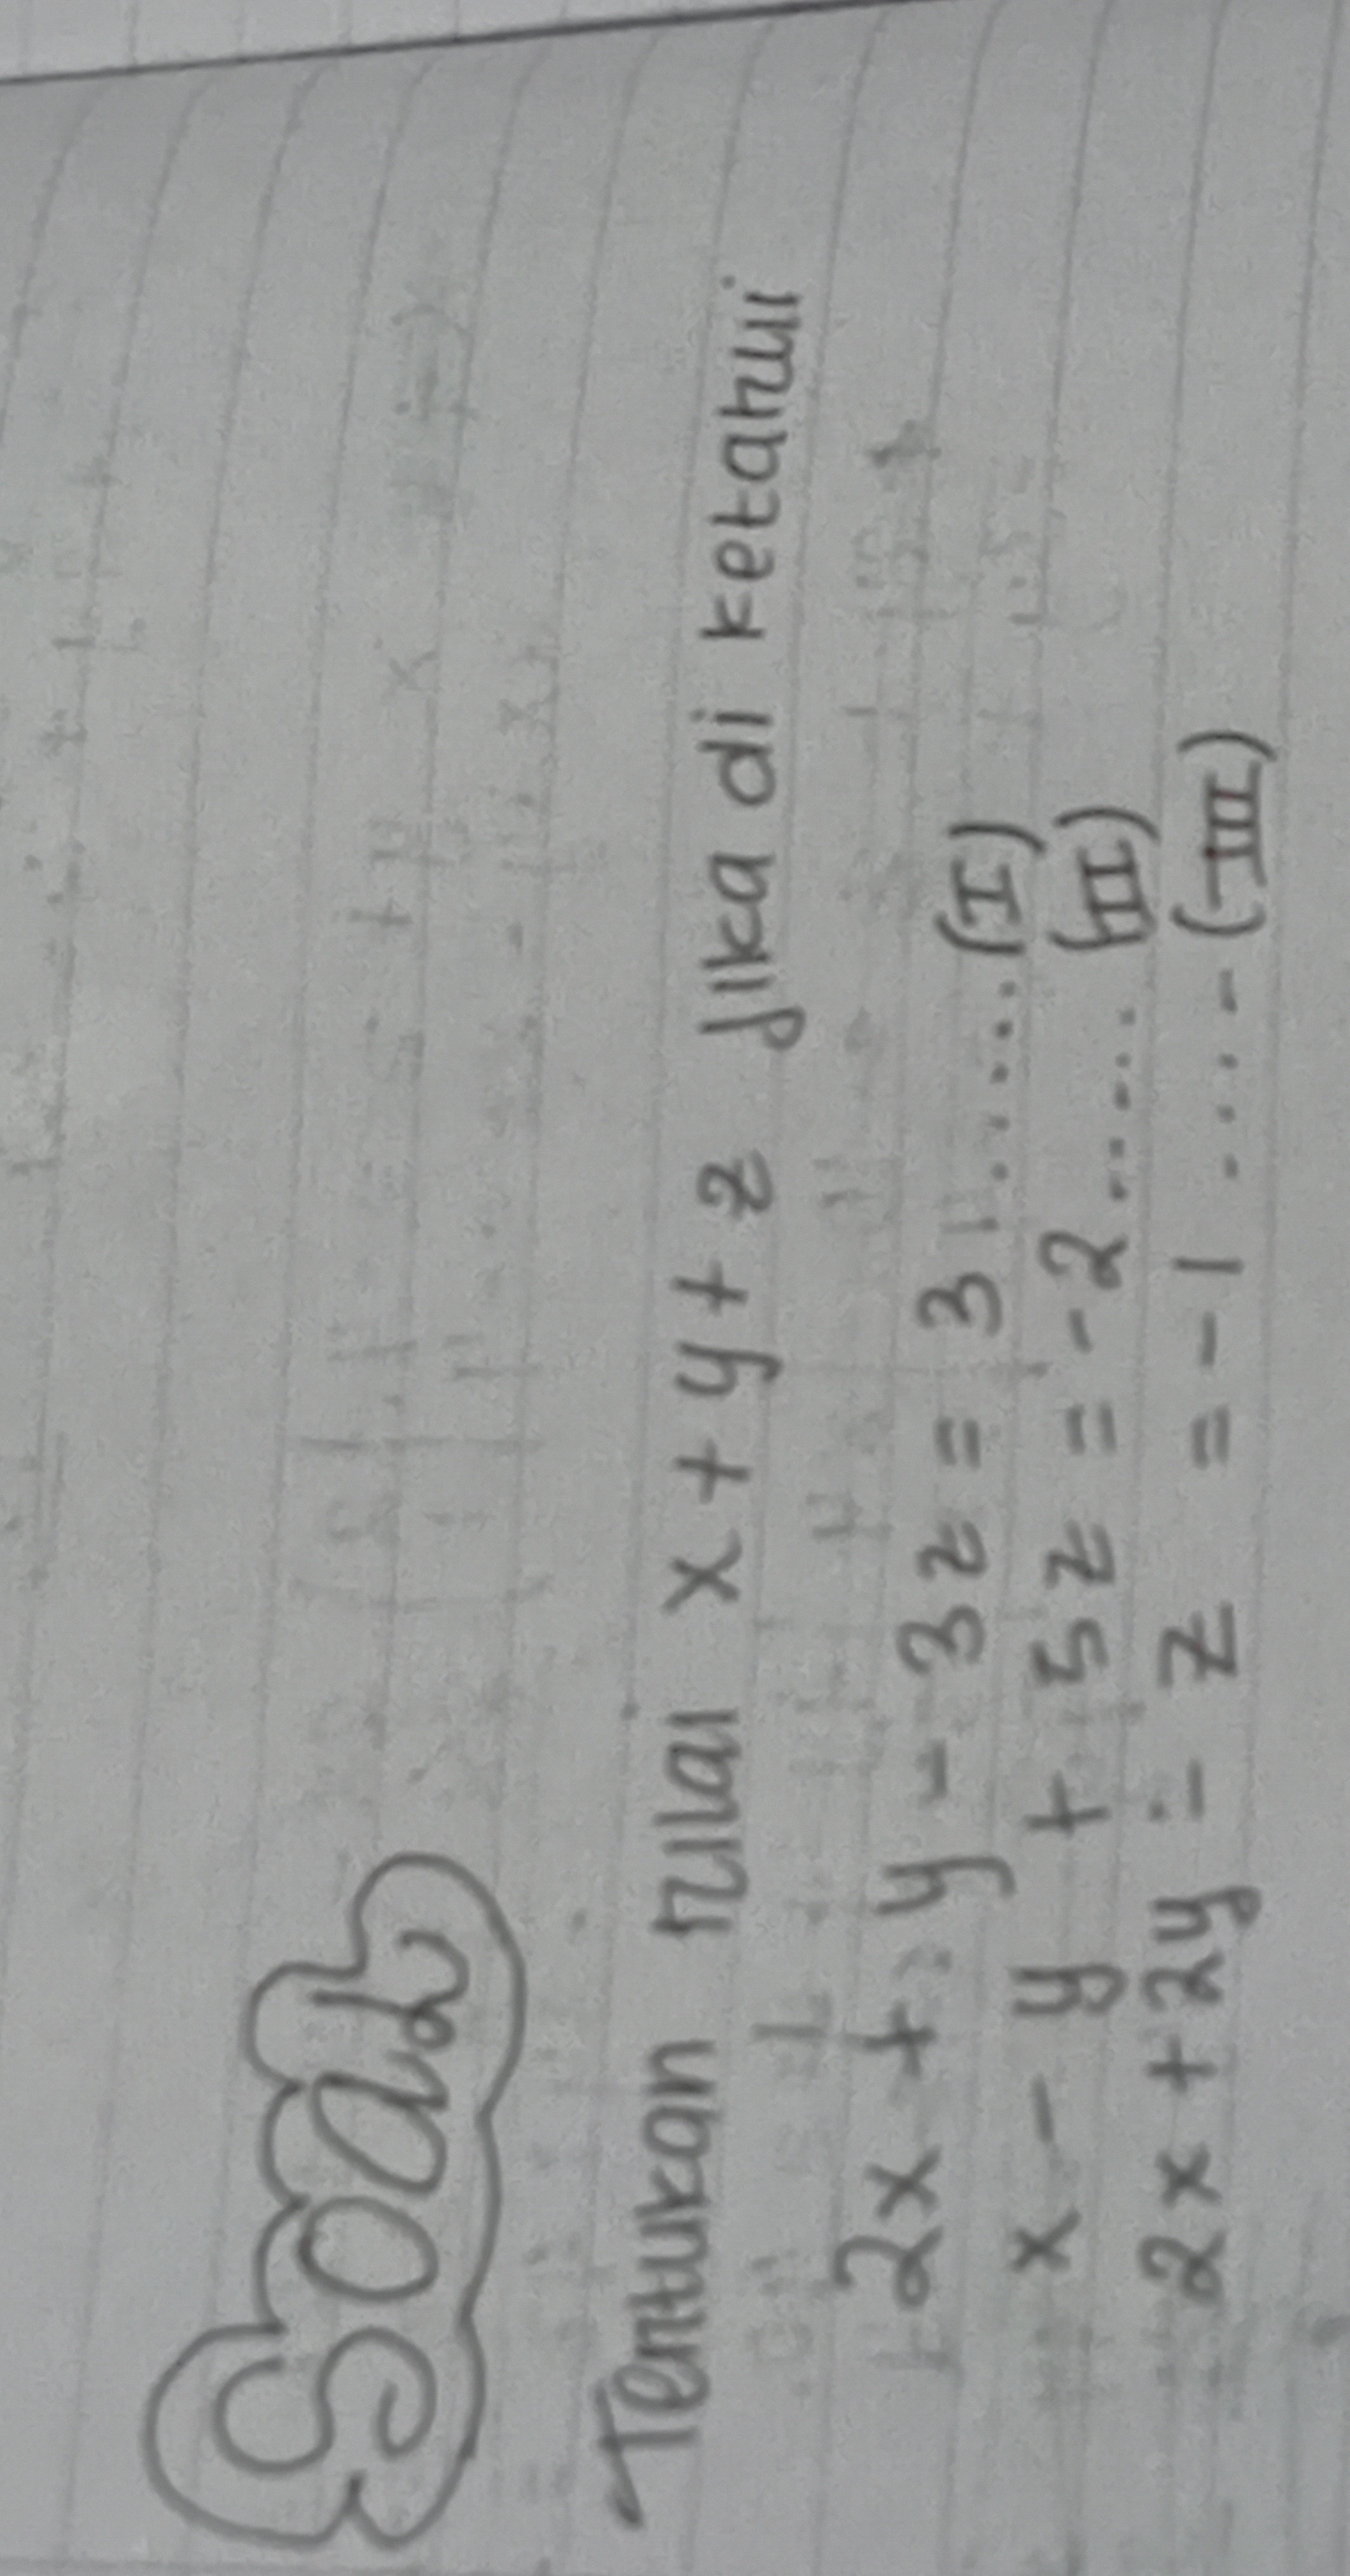 Soal
Tentukan nilai x + y + z jika di ketahui
2x + y - 3z = 3 ..... (I)
x - y + 5z = -2 ..... (II)
2x + 2y - z = -1 ..... (III)